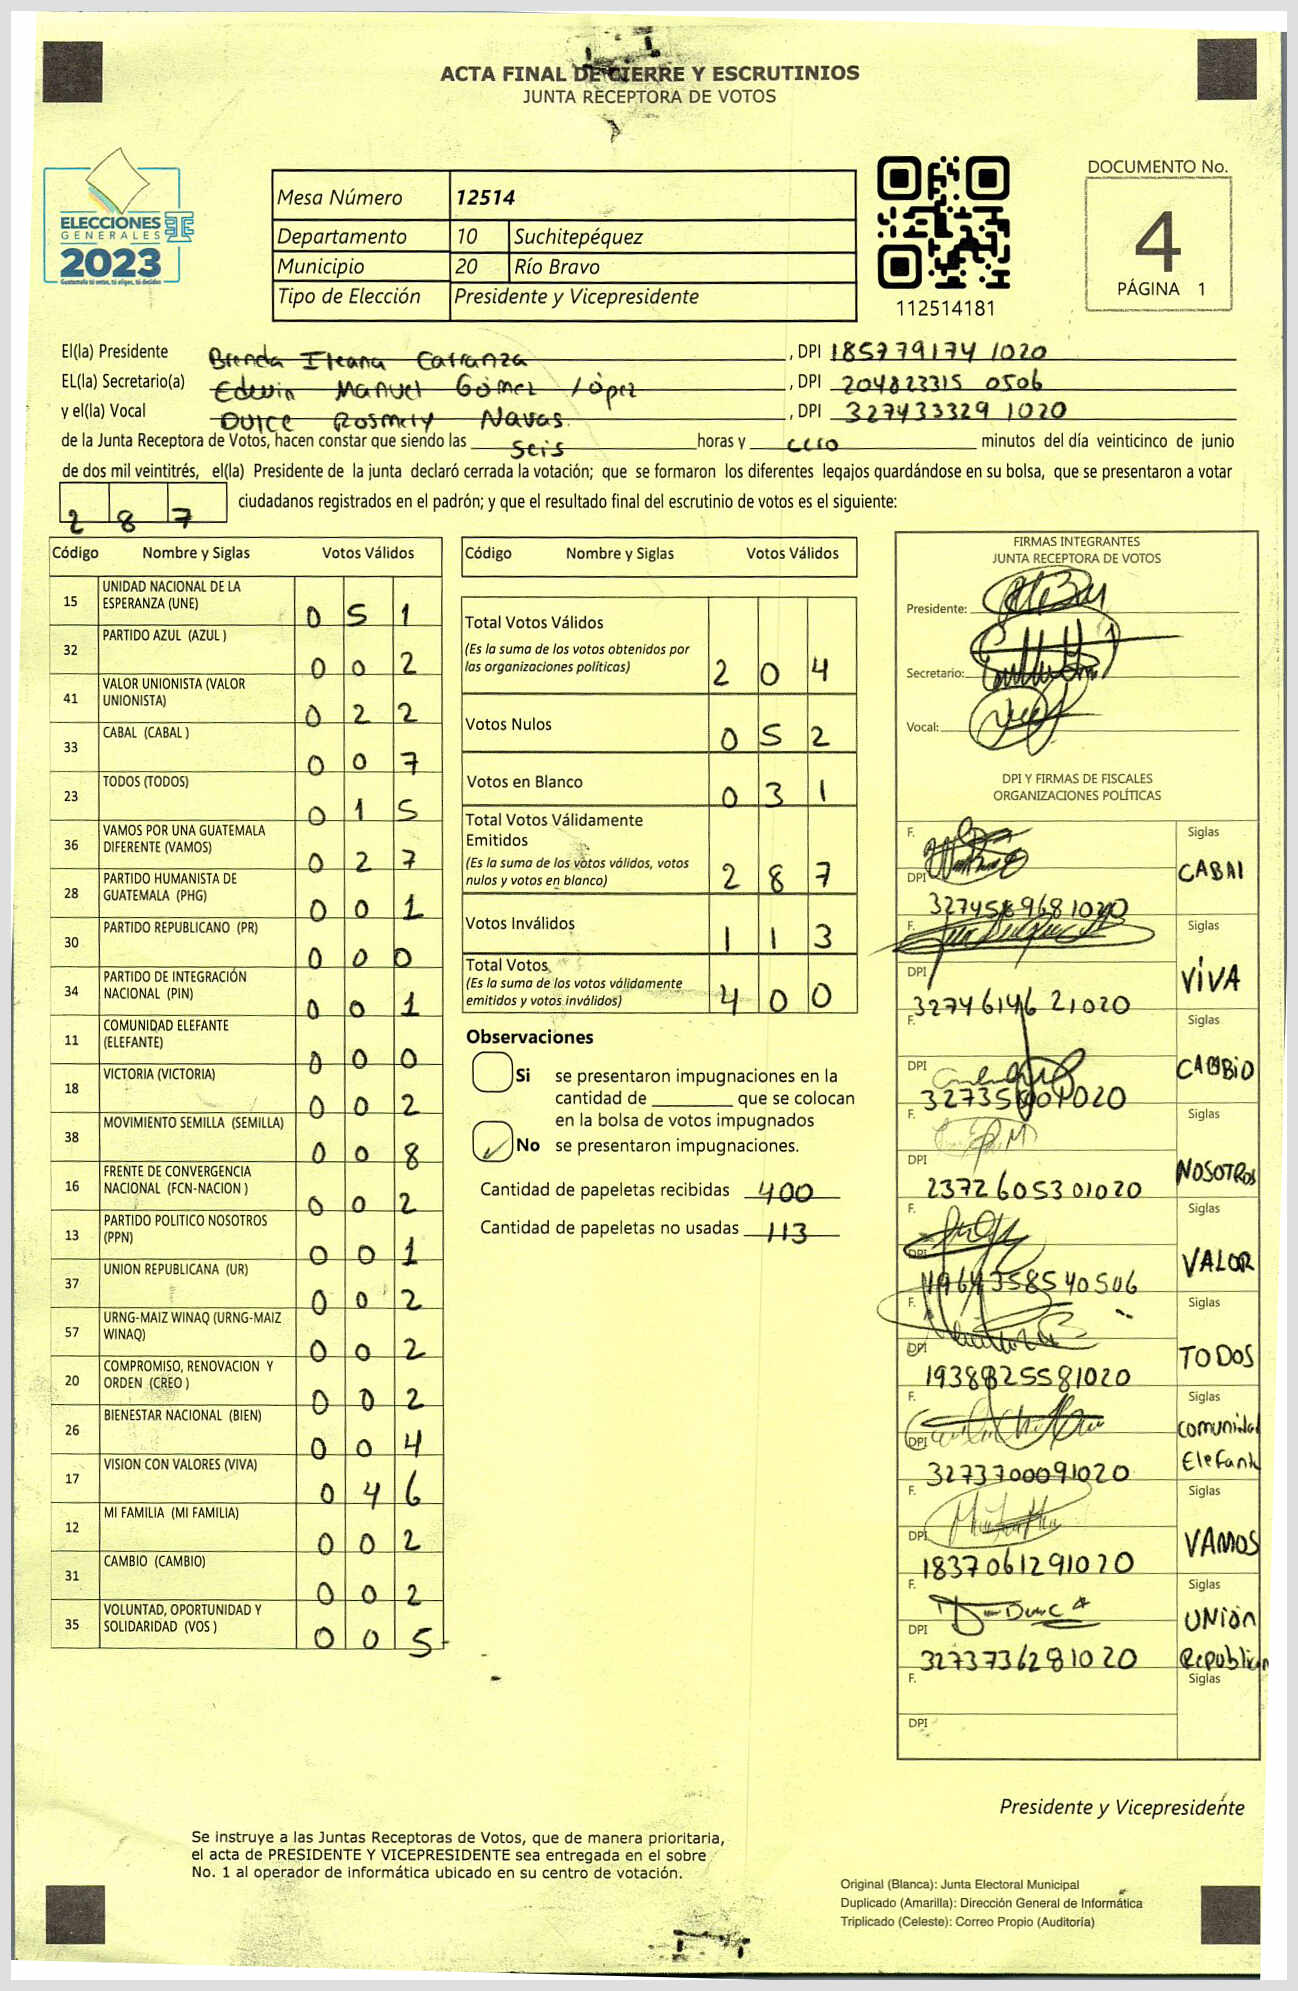 ACTA FINAL DE CIERRE Y ESCRUTINIOS
JUNTA RECEPTORA DE VOTOS
ELECCIONES
GENERALES
2023
Guatemala tú votas, tú eliges, tú decides
Mesa Número 12514
Departamento 10 Suchitepéquez
Municipio 20 Río Bravo
Tipo de Elección Presidente y Vicepresidente
112514181
DOCUMENTO No.
4
PÁGINA 1
El(la) Presidente Brenda Ileana Carranza , DPI 185779174 1020
EL(la) Secretario(a) Edwin Manuel Gómez López , DPI 204823315 0506
y el(la) Vocal Dulce Rosmery Navas , DPI 327433329 1020
de la Junta Receptora de Votos, hacen constar que siendo las seis horas y cero minutos del día veinticinco de junio
de dos mil veintitrés, el(la) Presidente de la junta declaró cerrada la votación; que se formaron los diferentes legajos guardándose en su bolsa, que se presentaron a votar
287 ciudadanos registrados en el padrón; y que el resultado final del escrutinio de votos es el siguiente:
Código Nombre y Siglas Votos Válidos
15 UNIDAD NACIONAL DE LA ESPERANZA (UNE) 051
32 PARTIDO AZUL (AZUL ) 002
41 VALOR UNIONISTA (VALOR UNIONISTA) 022
33 CABAL (CABAL ) 007
23 TODOS (TODOS) 015
36 VAMOS POR UNA GUATEMALA DIFERENTE (VAMOS) 027
28 PARTIDO HUMANISTA DE GUATEMALA (PHG) 001
30 PARTIDO REPUBLICANO (PR) 000
34 PARTIDO DE INTEGRACIÓN NACIONAL (PIN) 001
11 COMUNIDAD ELEFANTE (ELEFANTE) 000
18 VICTORIA (VICTORIA) 002
38 MOVIMIENTO SEMILLA (SEMILLA) 008
16 FRENTE DE CONVERGENCIA NACIONAL (FCN-NACION ) 002
13 PARTIDO POLITICO NOSOTROS (PPN) 001
37 UNION REPUBLICANA (UR) 002
57 URNG-MAIZ WINAQ (URNG-MAIZ WINAQ) 002
20 COMPROMISO, RENOVACION Y ORDEN (CREO ) 002
26 BIENESTAR NACIONAL (BIEN) 004
17 VISION CON VALORES (VIVA) 046
12 MI FAMILIA (MI FAMILIA) 002
31 CAMBIO (CAMBIO) 002
35 VOLUNTAD, OPORTUNIDAD Y SOLIDARIDAD (VOS ) 005
Código Nombre y Siglas Votos Válidos
Total Votos Válidos
(Es la suma de los votos obtenidos por
las organizaciones políticas) 204
Votos Nulos 052
Votos en Blanco 031
Total Votos Válidamente
Emitidos
(Es la suma de los votos válidos, votos
nulos y votos en blanco) 287
Votos Inválidos 113
Total Votos
(Es la suma de los votos válidamente
emitidos y votos inválidos) 400
Observaciones
Si se presentaron impugnaciones en la
cantidad de ________ que se colocan
en la bolsa de votos impugnados
No se presentaron impugnaciones.
Cantidad de papeletas recibidas 400
Cantidad de papeletas no usadas 113
FIRMAS INTEGRANTES
JUNTA RECEPTORA DE VOTOS
Presidente:
Secretario:
Vocal:
DPI Y FIRMAS DE FISCALES
ORGANIZACIONES POLÍTICAS
F. Siglas
DPI CABAL
F. Siglas
DPI 32746146 21020 VIVA
F. Siglas
DPI CAMBIO
F. Siglas
DPI 2372605301020 NOSOTROS
F. Siglas
DPI VALOR
F. Siglas
DPI 1938825581020 TODOS
F. Siglas
DPI 3273700091020 Comunidad Elefante
F. Siglas
DPI 1837061291020 VAMOS
F. Siglas
DPI 3273736281020 UNIÓN Republican
F. Siglas
DPI
Presidente y Vicepresidente
Se instruye a las Juntas Receptoras de Votos, que de manera prioritaria,
el acta de PRESIDENTE Y VICEPRESIDENTE sea entregada en el sobre
No. 1 al operador de informática ubicado en su centro de votación.
Original (Blanca): Junta Electoral Municipal
Duplicado (Amarilla): Dirección General de Informática
Triplicado (Celeste): Correo Propio (Auditoría)